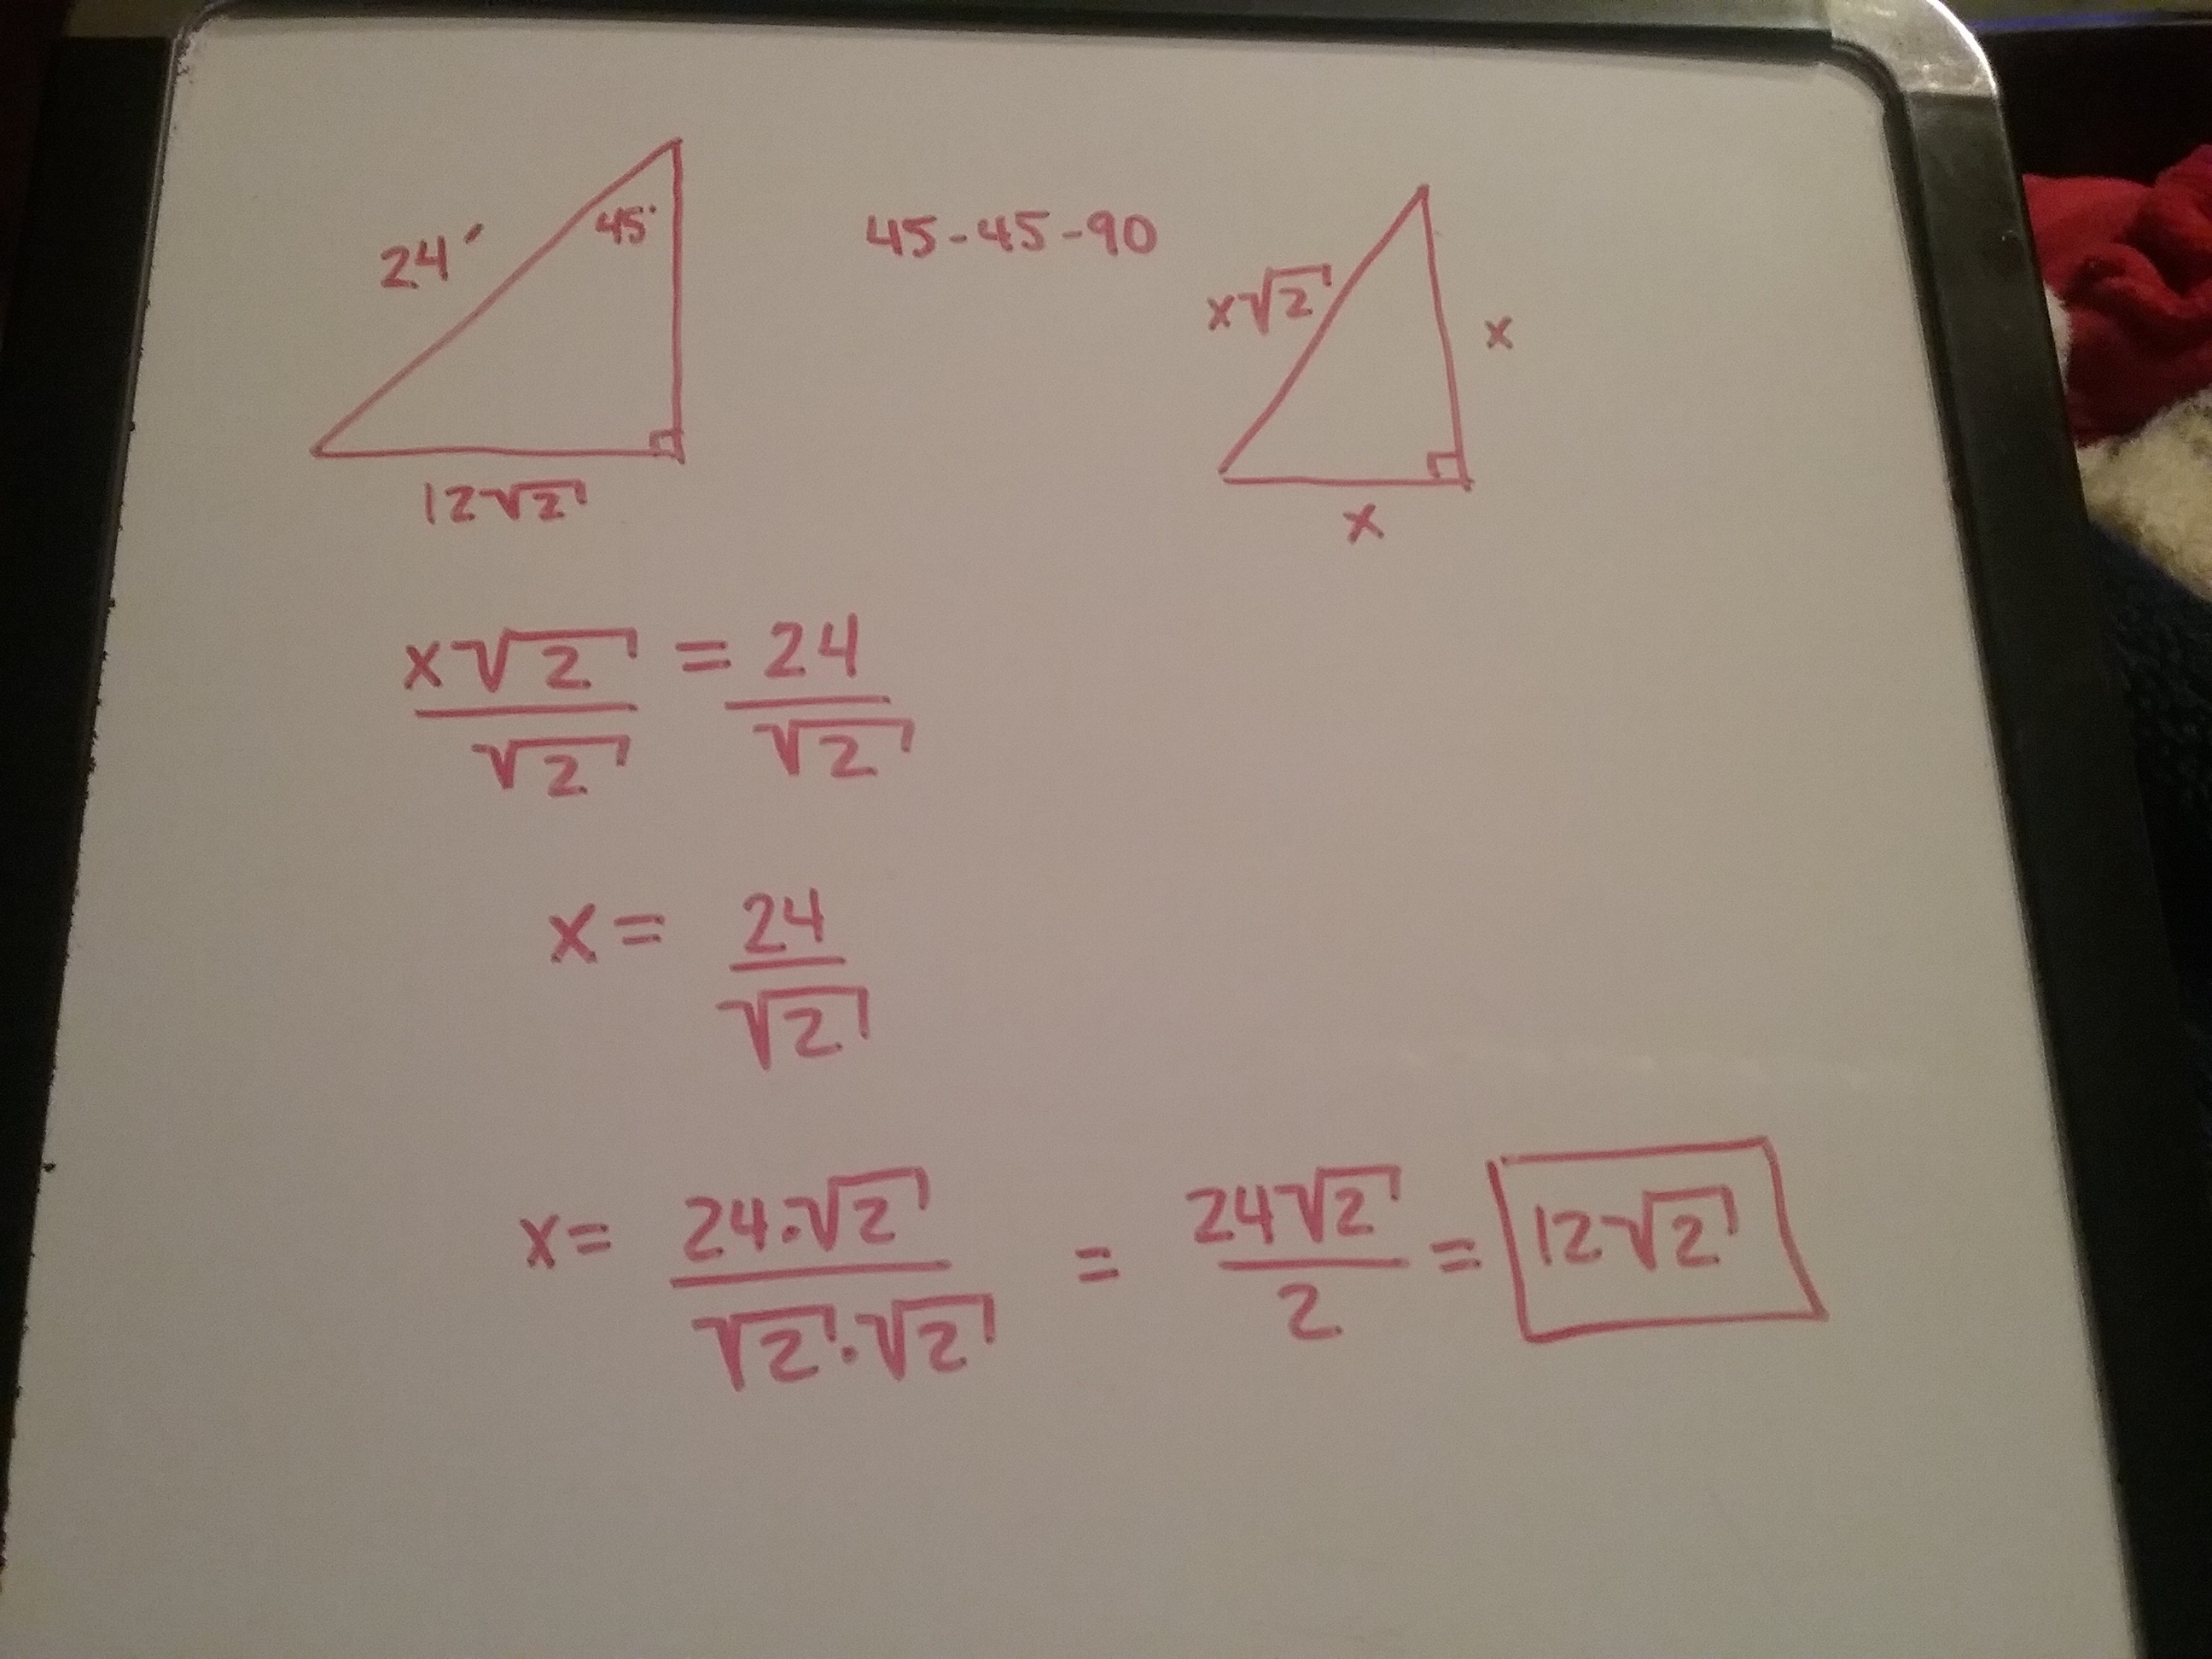 24' 45° 45-45-90 x√2 x
12√2 x
x√2 / √2 = 24 / √2
x = 24 / √2
x = 24·√2 / √2·√2 = 24√2 / 2 = 12√2